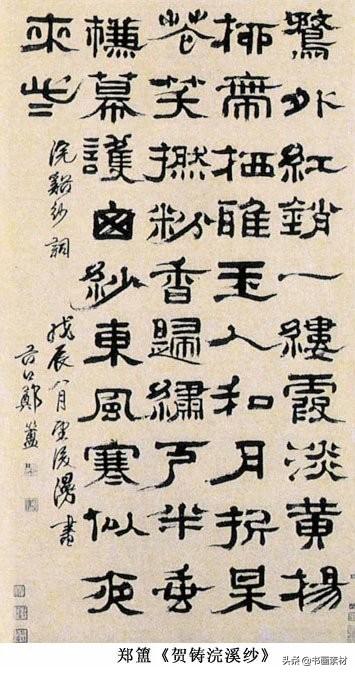 鶩外紅銷一縷霞淡黃楊
柳帶栖雅玉人和月折某
花笑撚粉香歸繡戶半垂
幕護囪紗東風寒似夜
來些
浣谿紗詞
戊辰八月望後漫書
谷口鄭簠
郑簠《贺铸浣溪纱》
头条 @书画素材